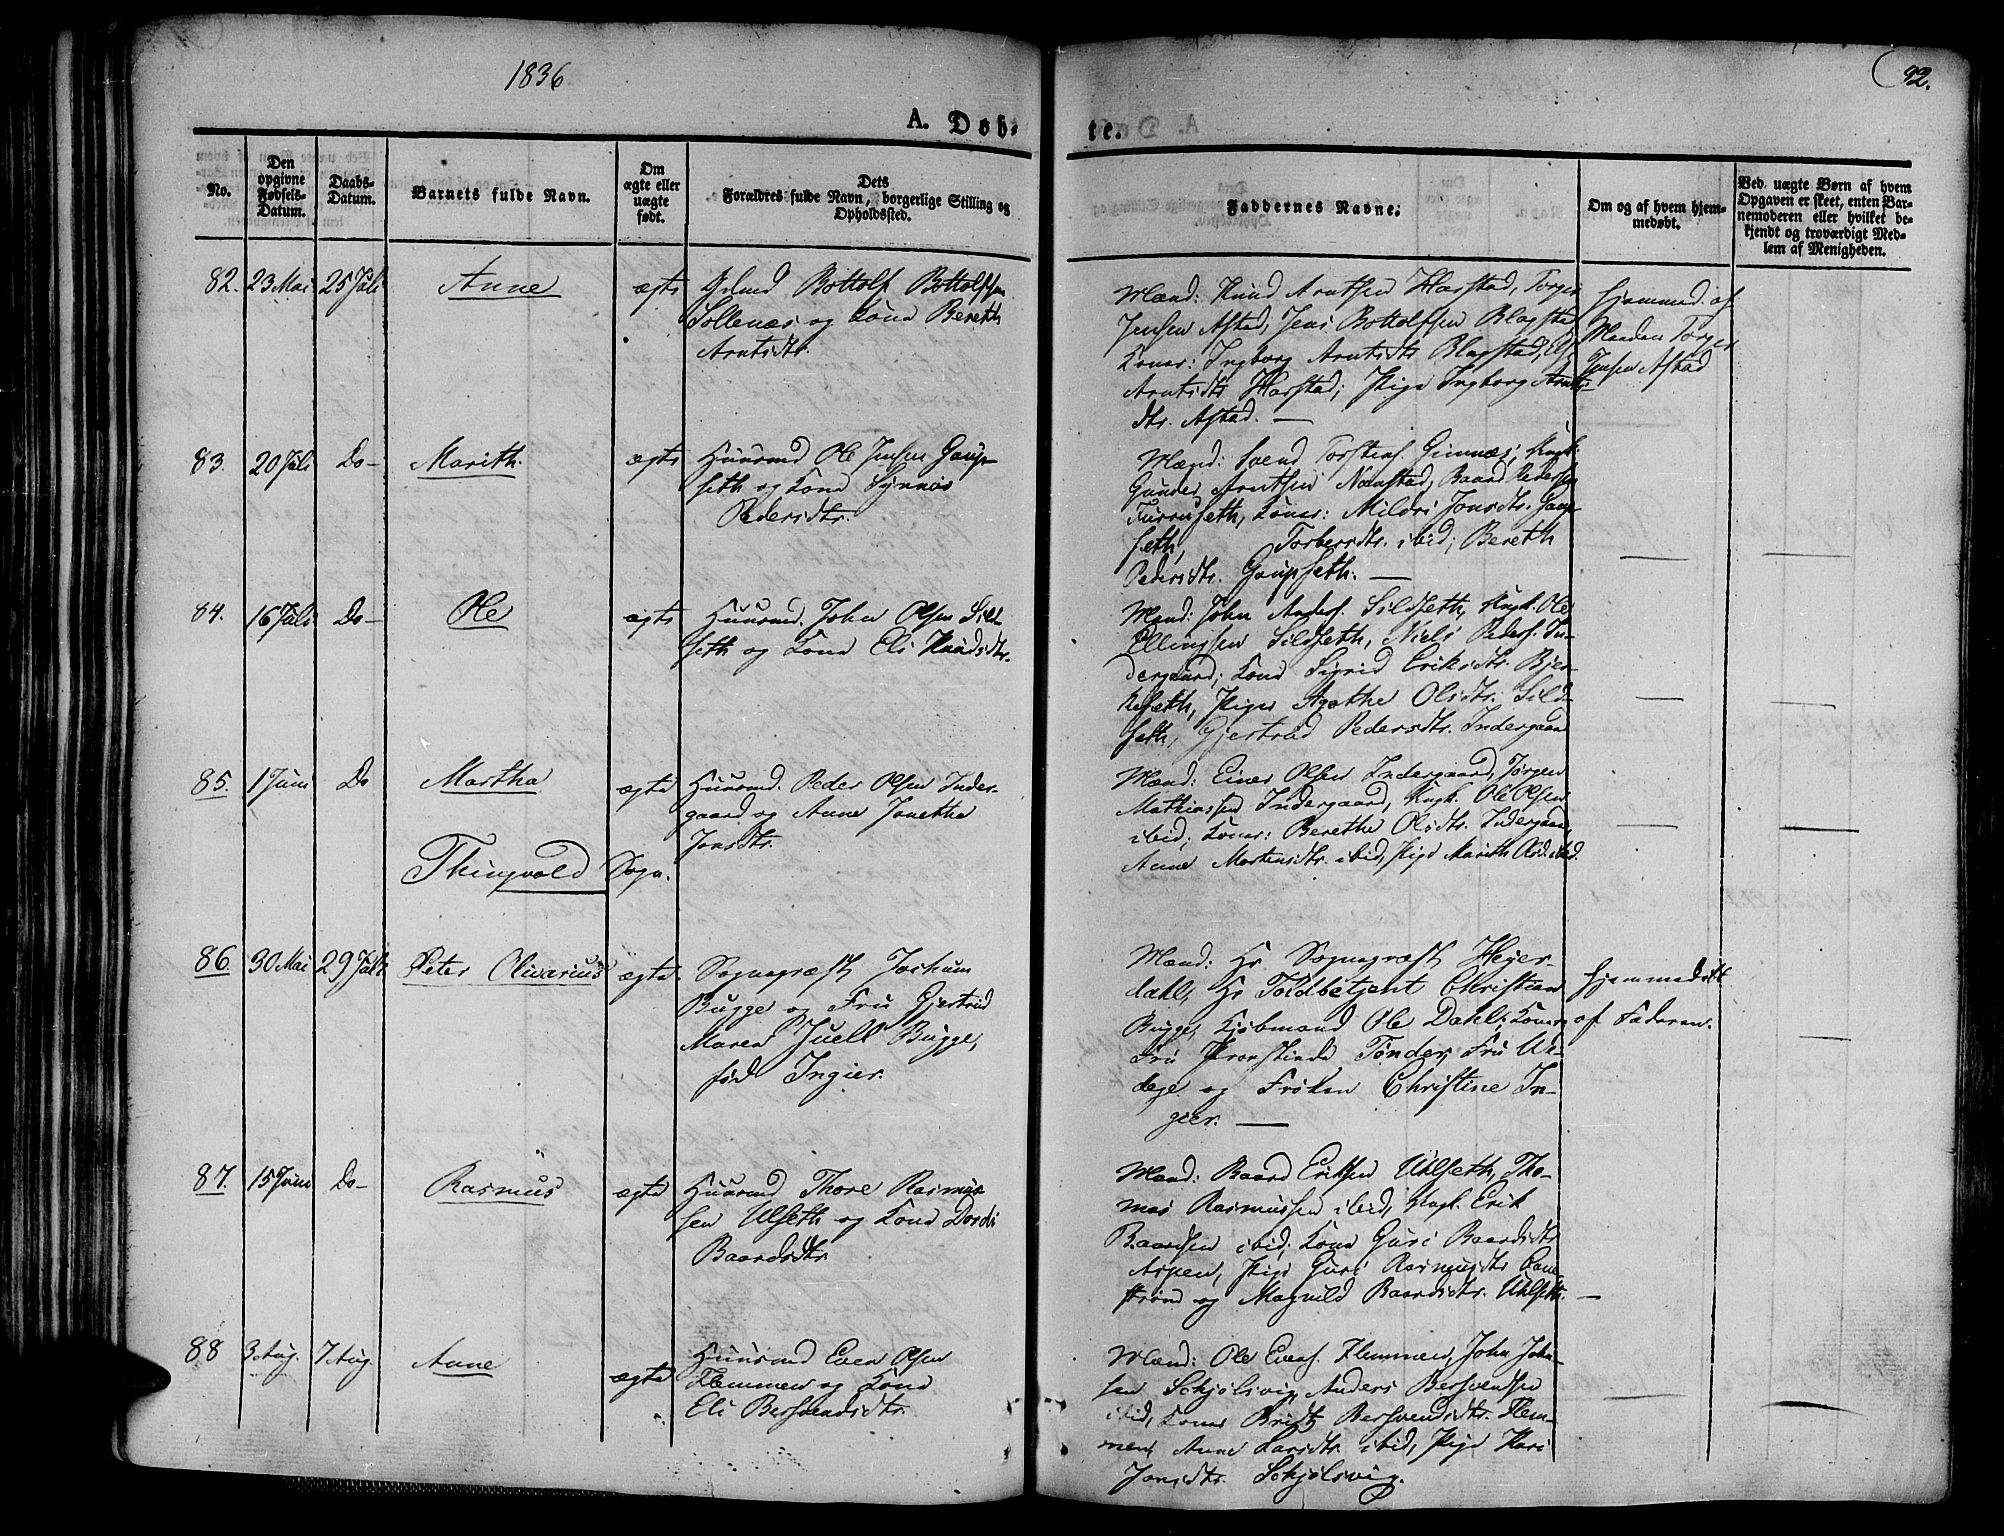 1836
92.
A. Døb-
te.
No.
Den opgivne Fødsels-Datum.
Daabs-Datum.
Barnets fulde Navn.
Om ægte eller uægte født.
Dets Forældres fulde Navn, borgerlige Stilling og Opholdssted.
Faddernes Navne.
Om og af hvem hjem-
medøbt.
Ved uægte Børn af hvem
Opgaven er skeet, enten Bar-
nemoderen eller hvilket be-
kjendt og troværdigt Med-
lem af Menigheden.
82. 23 Mai 25 Juli Anne ægte Bottolf Bottolfsen
Sollenæs og Kone Bereth
Arntsdtr.
Mænd: Knud Arntsen Harstad, Torger
Jensen Astad, Jens Bottolfsen Blagsta
Koner: Ingborg Arntsdtr Blagstad,
Arntsdtr Harstad; Pige Ingborg Arnts-
dtr. Astad. —
Hjemmed. af
Manden Torger
Jensen Astad
83. 20 Juli Do— Marith. ægte Huusmd Ole Jensen Goup-
seth og Kone Synnøs
Pedersdtr.
Mænd: Svend Torstens. Gimnæs; Ungk.
Gunder Arntsen Nænstad, Baard Pedersen
Furruseth, Koner: Mildri Jonsdtr. Goup-
seth, Torbersdtr. ibid; Bereth
Pedersdtr. Goupseth. —
84. 16 Juli Do— Ole ægte Huusmd. John Olsen Sild-
seth og Kone Eli Knudsdtr.
Mænd: John Anders. Sildseth, Ungk. Ole
Ellingsen Sildseth, Niels Peders. In-
dergaard; Kone Sigrid Eriksdtr. Bjer-
keseth, Piger Agathe Olsdtr. Sild-
seth, Gjertrud Pedersdtr. Indergaard
85. 1 Juni Do Martha ægte Huusmd. Peder Olsen Inder-
gaard og Anne Jonetha
Jonsdtr.
Mænd: Einer Olsen Indergaard, Jørgen
Mathiassen Indergaard, Ungk. Ole Olsen
ibid; Koner: Berethe Olsdtr. Indergaard,
Anne Mortensdtr. ibid, Pige Marith Olsd. ibid.
Thingvold Sogn.
86 30 Mai 29 Juli Peter Olivarius ægte Sognepræst Jochum
Bugge og Fru Gjertrud
Maren Juell Bugge,
fød Ingier.
Mænd: Hr Sognepræst Hejer-
dahl, Hr Toldbetjent Christian
Bugge, Kjøbmand Ole Dahl; Koner
Fru Provstinde Tønder, Fru Ul-
dage og Frøken Christine In-
gier. —
Hjemmedøbt
af Faderen.
87. 15 Juni Do— Rasmus ægte Huusmd Thore Rasmus-
sen Ulseth og Kone Dordi
Baardsdtr
Mænd: Baard Eriksen Ulseth, Tho-
mas Rasmussen ibid, Ungk. Erik
Baardsen ibid; Kone Guri Baardsdtr
Aspen, Pige Guri Rasmusdtr
strand og Magnild Baardsdtr. Ulseth. —
88 3 Aug. 7 Aug. Anne ægte Huusmd Even Olsen
Flemmen og Kone
Eli Bersvendsdtr.
Mænd: Ole Evens. Flemmen, John John-
sen Schjølsvig, Anders Bersvendsen
ibid, Koner Brit Bersvendsdtr. Flem-
men, Anne Larsdtr ibid, Pige Kari
Jonsdtr. Schjølsvig.